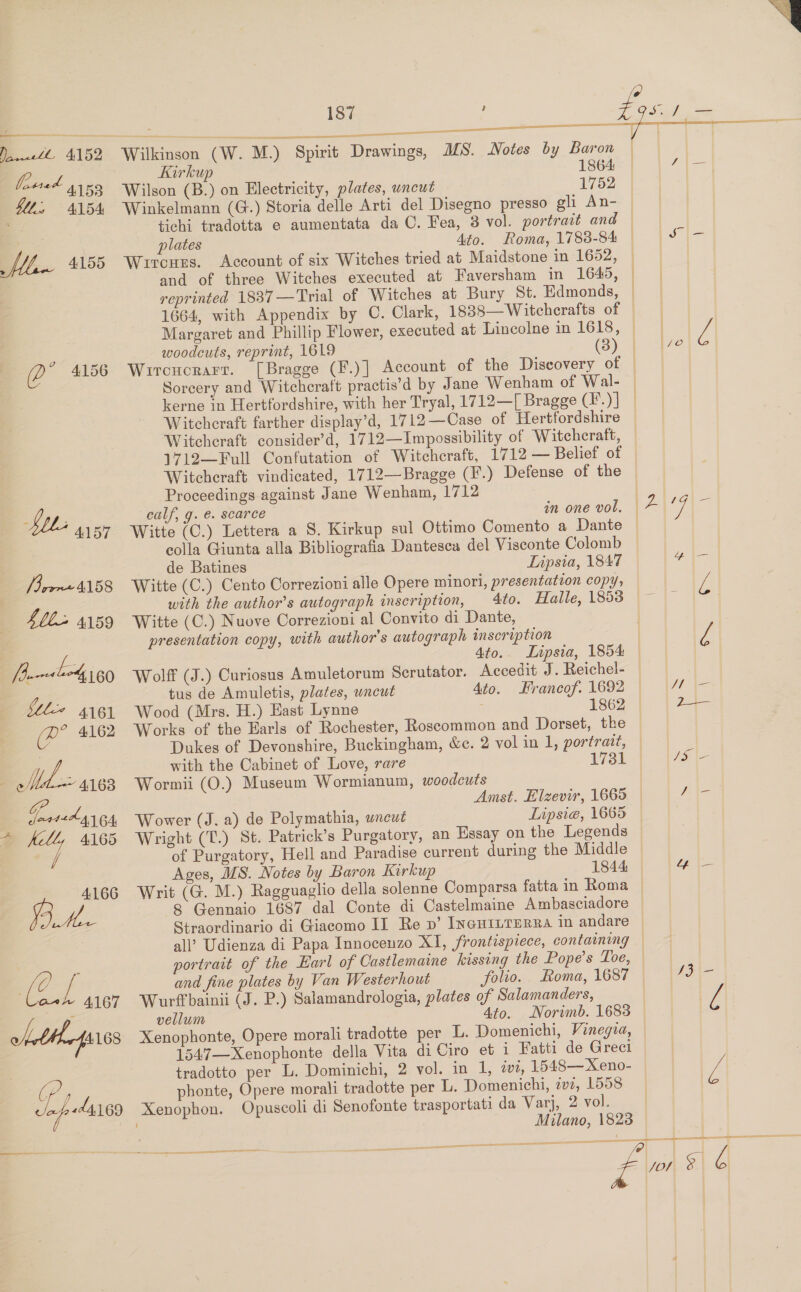 187 £ 95. 1 —
4152 Wilkinson (W. M.) Spirit Drawings, MS. Notes by Baron
Kirkup 1864 1 —
Passed 4153 Wilson (B.) on Electricity, plates, uncut 1752
Ellis 4154 Winkelmann (G.) Storia delle Arti del Disegno presso gli An-
tichi tradotta e aumentata da C. Fea, 3 vol. portrait and
plates 4to. Roma, 1783-84 5 —
Allen 4155 WITCHES. Account of six Witches tried at Maidstone in 1652,
and of three Witches executed at Faversham in 1645,
reprinted 1837—Trial of Witches at Bury St. Edmonds,
1664, with Appendix by C. Clark, 1838—Witchcrafts of
Margaret and Phillip Flower, executed at Lincolne in 1618,
woodcuts, reprint, 1619 (3) 10 6
Do 4156 WITCHCRAFT. [Bragge (F.)] Account of the Discovery of
Sorcery and Witchcraft practis'd by Jane Wenham of Wal-
kerne in Hertfordshire, with her Tryal, 1712—[Bragge (F.)]
Witchcraft farther display'd, 1712—Case of Hertfordshire
Witchcraft consider'd, 1712—Impossibility of Witchcraft,
1712—Full Confutation of Witchcraft, 1712—Belief of
Witchcraft vindicated, 1712—Bragge (F.) Defense of the
Proceedings against Jane Wenham, 1712
calf, g. e. scarce in one vol. 2 19 —
Ellis 4157 Witte (C.) Lettera a S. Kirkup sul Ottimo Comento a Dante
colla Giunta alla Bibliografia Dantesca del Visconte Colomb
de Batines Lipsia, 1847 4 —
Borne 4158 Witte (C.) Cento Correzioni alle Opere minori, presentation copy,
with the author's autograph inscription, 4to. Halle, 1853 6
Ellis 4159 Witte (C.) Nuove Correzioni al Convito di Dante,
presentation copy, with author's autograph inscription
4to. Lipsia, 1854 6
4160 Wolff (J.) Curiosus Amuletorum Scrutator. Accedit J. Reichel-
tus de Amuletis, plates, uncut 4to. Francof. 1692 11 —
Ellis 4161 Wood (Mrs. H.) East Lynne 1862 2 —
Do 4162 Works of the Earls of Rochester, Roscommon and Dorset, the
Dukes of Devonshire, Buckingham, &c. 2 vol in 1, portrait,
with the Cabinet of Love, rare 1731 15 —
4163 Wormii (O.) Museum Wormianum, woodcuts
Amst. Elzevir, 1665 1 —
Passed 4164 Wower (J. a) de Polymathia, uncut Lipsiæ, 1665
Kelly 4165 Wright (T.) St. Patrick's Purgatory, an Essay on the Legends
of Purgatory, Hell and Paradise current during the Middle
Ages, MS. Notes by Baron Kirkup 1844 4 —
4166 Writ (G. M.) Ragguaglio della solenne Comparsa fatta in Roma
8 Gennaio 1687 dal Conte di Castelmaine Ambasciadore
Straordinario di Giacomo II Re p' INGHILTERRA in andare
all' Udienza di Papa Innocenzo XI, frontispiece, containing
portrait of the Earl of Castlemaine kissing the Pope's Toe,
and fine plates by Van Westerhout folio. Roma, 1687 13 —
Cash 4167 Wurffbainii (J. P.) Salamandrologia, plates of Salamanders,
vellum 4to. Norimb. 1683 6
4168 Xenophonte, Opere morali tradotte per L. Domenichi, Vinegia,
1547—Xenophonte della Vita di Ciro et i Fatti de Greci
tradotto per L. Dominichi, 2 vol. in 1, ivi, 1548—Xeno-
phonte, Opere morali tradotte per L. Domenichi, ivi, 1558 6
4169 Xenophon. Opuscoli di Senofonte trasportati da Varj, 2 vol.
Milano, 1823
£ 101 8 6